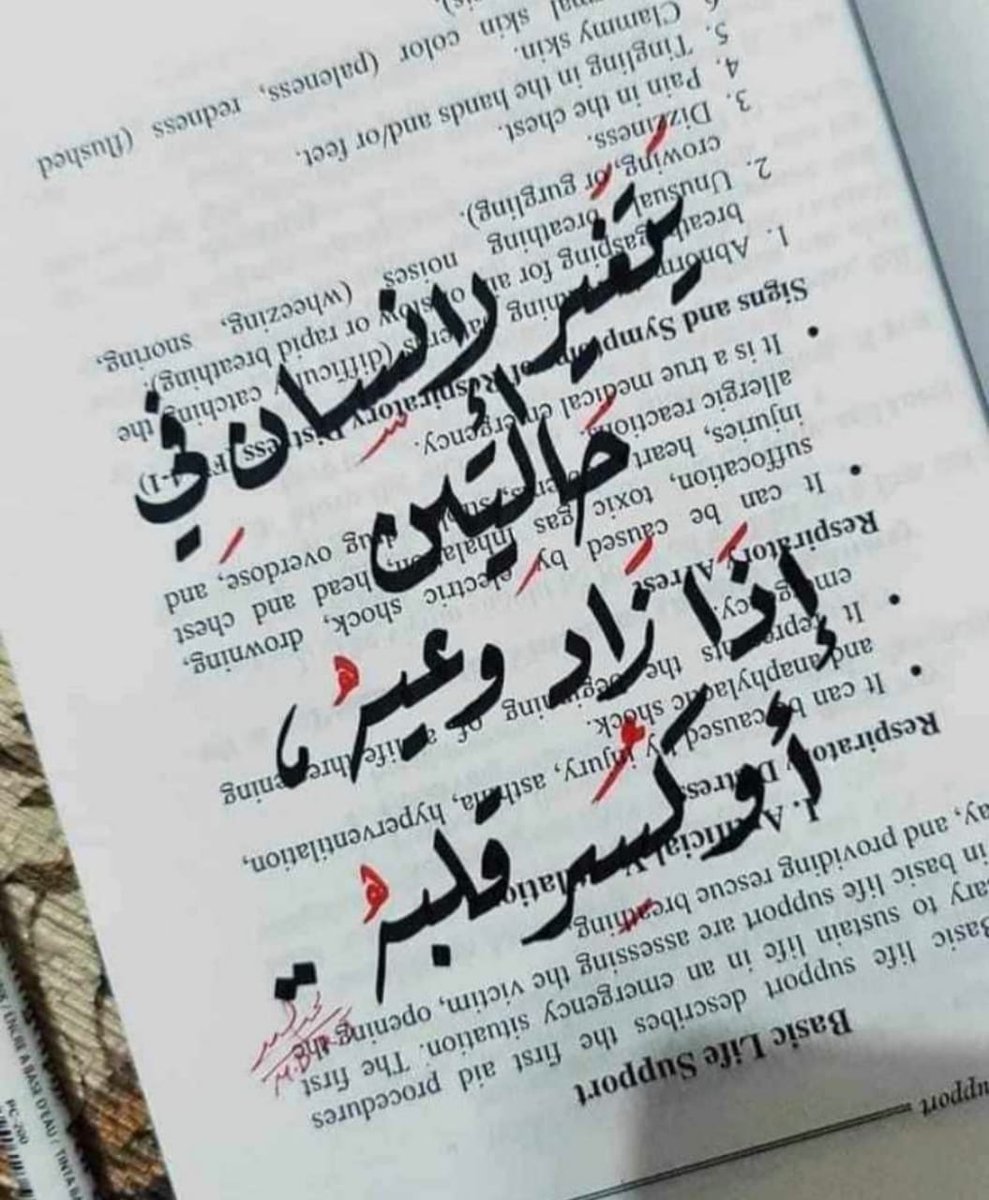 يتغير لانسان في
حالتين
إذا زاد وعيه ،
أو كسر قلبه ..
M.B
upport
Basic Life Support
Basic life support describes the first aid procedures
sary to sustain life in an emergency situation. The first
in basic life support are assessing the victim, opening the
ay, and providing rescue breathing.
I. Artificial Ventilation
Respiratory Distress
• It can be caused by injury, asthma, hyperventilation,
and anaphylactic shock.
• It represents the beginning of a life threatening
emergency.
Respiratory Arrest
• It can be caused by electric shock, drowning,
suffocation, toxic gas inhalation, head and chest
injuries, heart drug overdose, and
allergic reactions.
• It is a true medical emergency.
Signs and Symptoms of Respiratory Distress
1. Abnormal breathing patterns (difficulty catching the
breath, gasping for air or slow or rapid breathing).
2. Unusual breathing noises (wheezing, snoring,
crowing, or gurgling).
3. Dizziness.
4. Pain in the chest.
5. Tingling in the hands and/or feet.
6. Clammy skin.
skin color (paleness, redness (flushed
ENCRE A BASE D'EAU / TINTA BA
PC-200